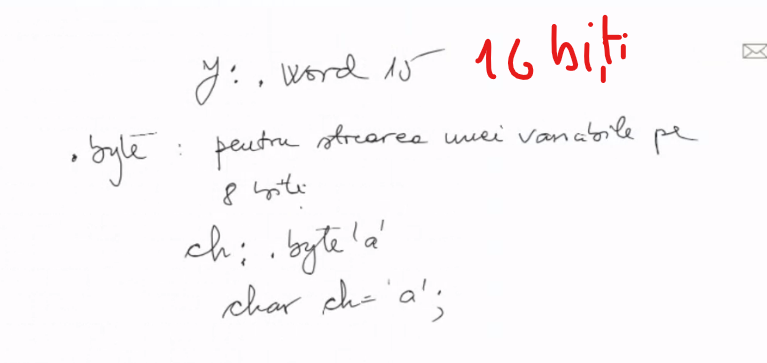 y: .word 15 16 biți
.byte : pentru stocarea unei variabile pe
8 biți
ch: .byte 'a'
char ch = 'a';